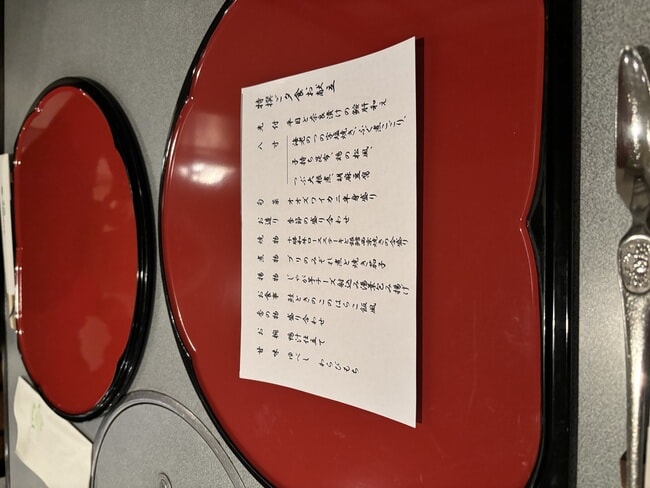 特撰ご夕食お献立
先付 平目と奈良漬けの鮟肝和え
八寸 海老のつの字塩焼き、ふぐ煮こごり、
子持ち昆布、鶏の松風、
つぶ大根煮、胡麻豆腐
旬菜 オオズワイカニ半身盛り
お造り 季節の盛り合わせ
焼物 十勝和牛ロースステーキと銀鱈西京焼きの合盛り
煮物 ブリのみぞれ煮と焼き茄子
揚物 じゃが芋チーズ射込み湯葉包み揚げ
お食事 鮭ときのこのはらこ飯風
香の物 盛り合わせ
お椀 鴨汁仕立て
甘味 ゆべし わらびもち